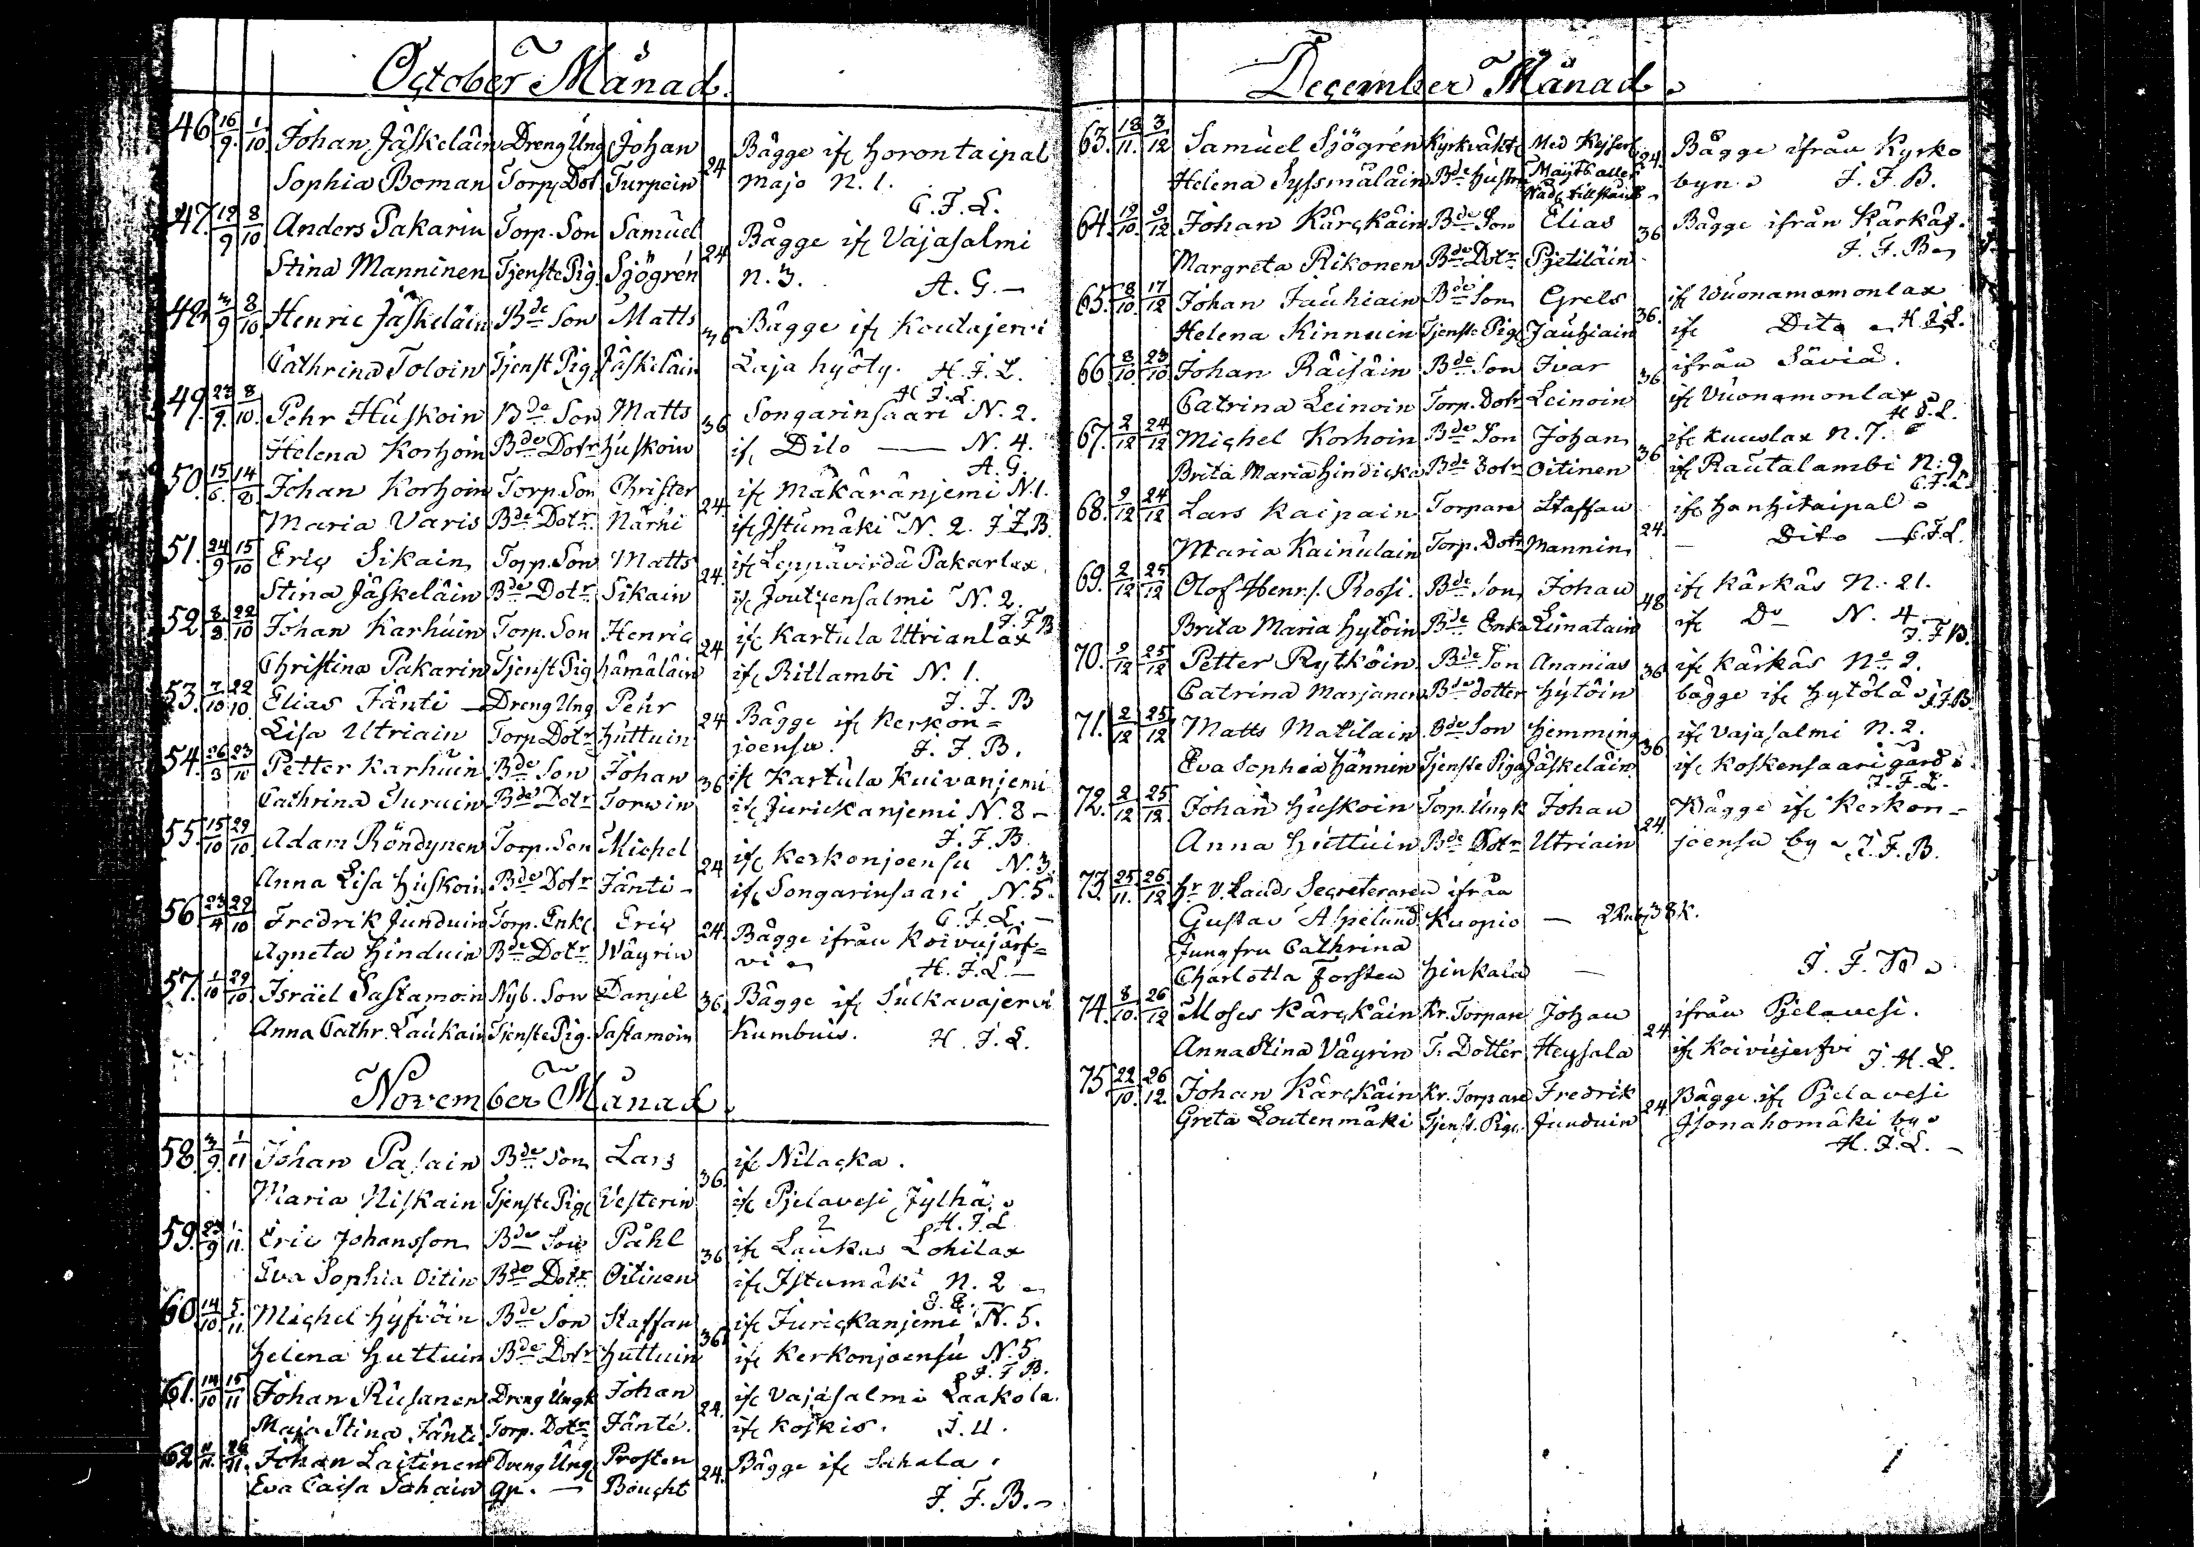 October Månad.
46. 16/9. 1/10. Johan Jäskeläin Dreng Ung Johan 24 Bägge ifr Horontaipal
Sophia Boman Torp. Dot Turpein majo N. 1.
C. F. L.
47. 19/9 8/10 Anders Pakarin Torp. Son Samuel 24 Bägge ifr Vajasalmi
Stina Manninen Tjenste Pig. Sjögrén N. 3. A. G.
48. 3/9 8/10. Henric Jäskeläin Bde Son Matts 36 Bägge ifr Koutajervi
Cathrina Toloin Tjenst Pig. Jäskeläin Laja hyöty. H. F. L.
49. 23/9. 8/10. Pehr Huskoin Bde Son Matts 36 Songarinsaari N. 2. H. F. L.
Helena Korhoin Bde Dotr Huskoin ifr Dito — N. 4.
A. G.
50. 15/6. 14/8 Johan Korhoin Torp. Son Christer 24. ifr Mäkäränjemi N. 1.
Maria Varis Bde Dotr. Närhi ifr Istumäki N. 2. J. F. B.
51. 24/9 15/10 Eric Sikain Torp. Son Matts 24. ifr Leppävirda Pakarlax
Stina Jäskeläin Bde Dotr Sikain ifr Joutsensalmi N. 2.
J. F. B
52 8/8. 22/10 Johan Karhuin Torp. Son Henric 24 ifr Kartula Utrianlax
Christina Pakarin Tjenst Pig Hämäläin ifr Ritlambi N. 1.
J. F. B
53. 7/10 22/10 Elias Jänti — Dreng Ung Pehr 24 Bägge ifr Kerkon=
Lisa Utriain Torp Dotr Huttuin joensu. J. F. B.
54. 26/3 23/10 Petter Karhuin Bde Son Johan 36 ifr Kartula Kuivanjemi
Cathrina Turuin Bde Dotr Torwin ifr Jurickanjemi N. 8 –
J. F. B.
55. 15/10 29/10. Adam Röndynen Torp. Son Michel 24 ifr Kerkonjoensu N. 3.
Anna Lisa Huskoin Bde Dotr Jänti – ifr Songarinsaari N. 5.
C. F. L. –
56 23/4 29/10 Fredrik Junduin Torp. Enkl Eric 24. Bägge ifrån Koivujärf=
Agneta Hinduin Bde Dotr Väyrin vi H. F. L. –
57. 1/10 29/10 Israël Sastamoin Nyb. Son Danjel 36. Bägge ifr Sulkavajervi
Anna Cathr. Laukain Tjenste Pig. Sastamoin Kumbuis. H. F. L.
November Månad.
58. 3/9. 1/11 Johan Pasain Bde Son Lars 36. ifr Nilacka.
Maria Niskain Tjenste Pig. Vesterin ifr Pjelavesi Jylhä
H. F. L
59. 23/9 1/11. Eric Johansson Bde Son Påhl 36 ifr Laukas Lohilax
Eva Sophia Oitin Bde Dotr Oitinen ifr Istumäki N. 2
60 14/10 5/11 Michel Hyfvöin Bde Son Staffan 36. ifr Jurickanjemi N. 5.
Helena Huttuin Bde Dotr Huttuin ifr Kerkonjoensu N. 5
J. F. B.
61. 14/10 15/11 Johan Rusanen Dreng Ungk Johan 24. ifr Vajasalmi Laakola.
Maja Stina Jänti Torp. Dotr Jänti. ifr Koskis. J. U.
62 Johan Laitinen Dreng Ung Prosten 24. Bägge ifr Suhala
Eva Caisa Sohain qp. — Bóucht
J. F. B. –
December Månad.
63. 18/11. 3/12 Samuel Sjögrén Kyrkväkt Med Kejserl 24. Bägge ifrån Kyrko
Helena Syssmäläin Bde Hustru Majt:s aller byn. J. F. B.
Nåd. tillstånd
64. 19/10. 9/12 Johan Kärckäin Bde Son Elias 36 Bägge ifrån Kärkäs.
Margreta Rikonen Bde Dotr Pjetiläin J. F. B.
65. 8/10. 17/12 Johan Jauhiain Bde Son Grels 36. ifr Wuonamomonlax
Helena Kinnuin Tjenste Pig. Jauhiain ifr Dito H. F. L.
66. 8/10 23/10 Johan Räisäin Bde Son Ivar 36 ifrån Säviä.
Catrina Leinoin Torp. Dotr Leinoin ifr Vuonamonlax
H. F. L.
67. 2/12 24/12 Michel Korhoin Bde Son Johan 36 ifr Kuuslax N. 7.
Brita Maria Hindicka Bde Dotr Oitinen ifr Rautalambi N. 9
C. F. L.
68. 9/12 24/12 Lars Kaipain Torpare Staffan 24. ifr Hanhitaipal
Maria Kainulain Torp. Dotr Mannin — Dito — C. F. L.
69. 2/12 25/12 Olof Henr.s. Roosi. Bde Son Johan 48 ifr Kärkäs N. 21.
Brita Maria Hytöin Bde Enka Limatain ifr Do N. 4 –
J. F. B.
70. 9/12 25/12 Petter Rytköin Bde Son Ananias 36 ifr Kärkäs No 9.
Catrina Marjanen Bde dotter Hytöin bägge ifr Hytölä J. F. B.
71. 2/12 25/12 Matts Matilain Bde Son Hemming 36 ifr Vajasalmi N. 2.
Eva Sophia Hännin Tjenste Piga Jäskeläin ifr Koskensaari gård
J. F. L.
72. 2/12 25/12 Johan Huskoin Torp. Ungk Johan 24. Bägge ifr Kerkon=
Anna Huttuin Bde Dotr Utriain joensu by J. F. B.
73. 25/11. 26/12 Hr V. Lands Secreteraren ifrån
Gustav Aspelund Kuopio — 2 Rub 38 k.
Jungfru Cathrina
Charlotta Forsten Hinkala — J. F. B.
74. 8/10. 26/12 Moses Kärckäin Kr. Torpare Johan 24 ifrån Pjelavesi.
Anna Stina Väyrin T. Dotter Heysala ifr Koivujerfvi J. H. L.
75 22/10. 26/12. Johan Kärckäin Kr. Torpare Fredrik 24 Bägge ifr Pjelavesi
Greta Loutenmäki Tjenst. Pig. Junduin Isonahomäki by
H. F. L. –